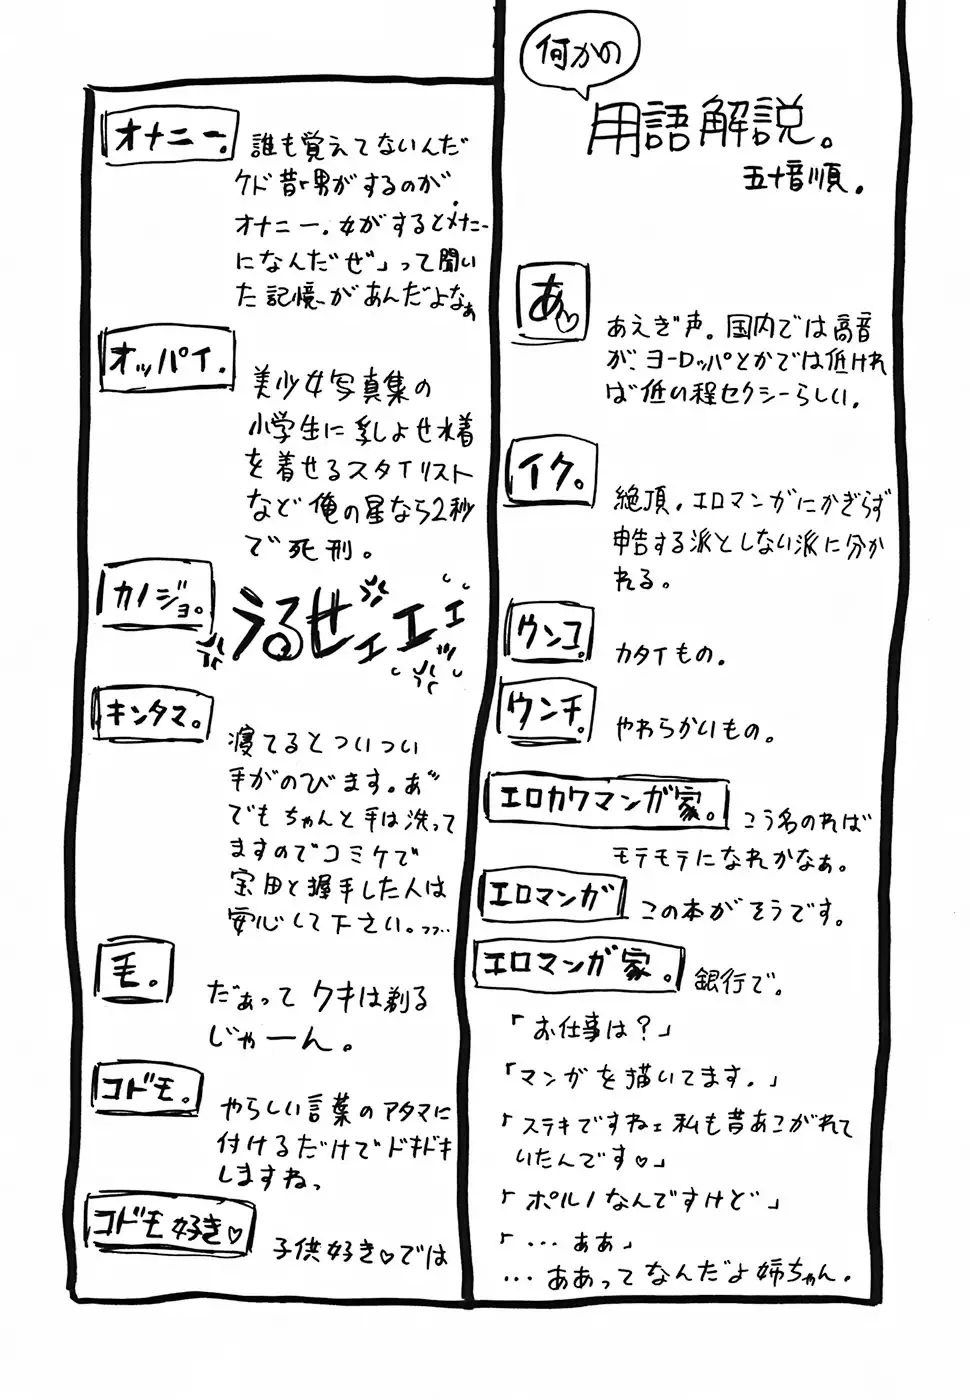 何かの
用語解説。
五十音順。
あ♡
あえぎ声。国内では高音
が、ヨーロッパとかでは低けれ
ば低い程セクシーらしい。
イク。
絶頂。エロマンガにかぎらず
申告する派としない派に分か
れる。
ウンコ。
カタイもの。
ウンチ。
やわらかいもの。
エロカワマンガ家。
こう名のれば
モテモテになれかなぁ。
エロマンガ
この本がそうです。
エロマンガ家。
銀行で。
「お仕事は?」
「マンガを描いてます。」
「ステキですねェ私も昔あこがれて
いたんです♡」
「ポルノなんですけど」
「...ぁぁ」
...ああってなんだよ姉ちゃん。
オナニー。
誰も覚えてないんだ
ケド昔「男がするのが
オナニー。女がするとメナニー
になんだぜ」って聞い
た記憶があんだよなぁ
オッパイ。
美少女写真集の
小学生に乳しよせ水着
を着せるスタイリスト
など俺の星なら2秒
で死刑。
カノジョ。
うるせェエェ
キンタマ。
寝てるとついつい
手がのびます。あ゛
でもちゃんと手は洗って
ますのでコミケで
宝田と握手した人は
安心して下さい。
毛。
だぁってクキは剃る
じゃーん。